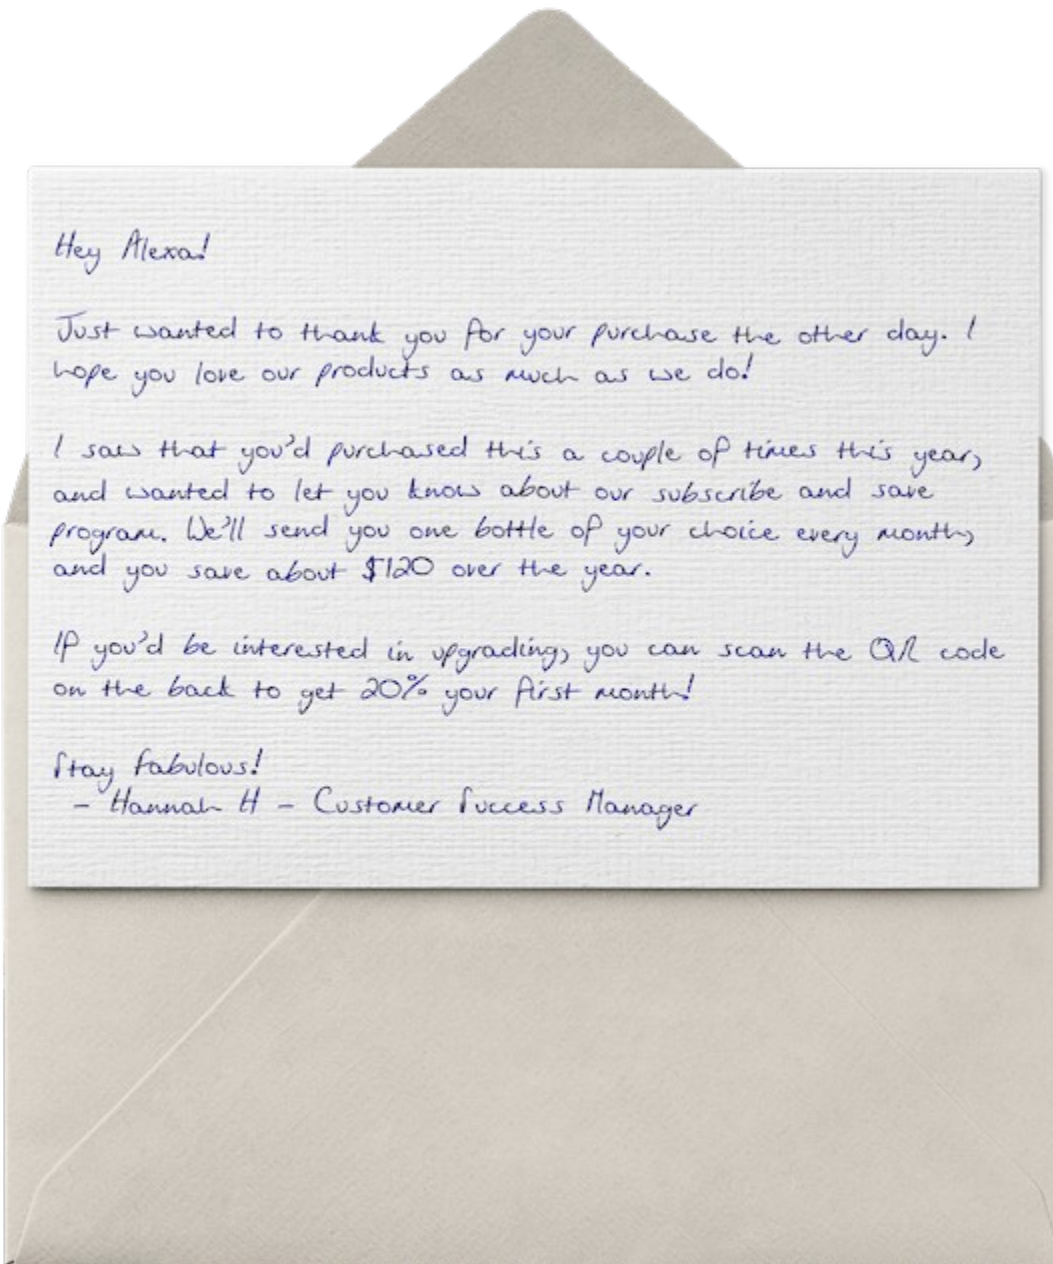 Hey Alexa!
Just wanted to thank you for your purchase the other day. I
hope you love our products as much as we do!
I saw that you'd purchased this a couple of times this year,
and wanted to let you know about our subscribe and save
program. We'll send you one bottle of your choice every month,
and you save about $120 over the year.
If you'd be interested in upgrading, you can scan the QR code
on the back to get 20% your first month!
Stay fabulous!
- Hannah H - Customer Success Manager